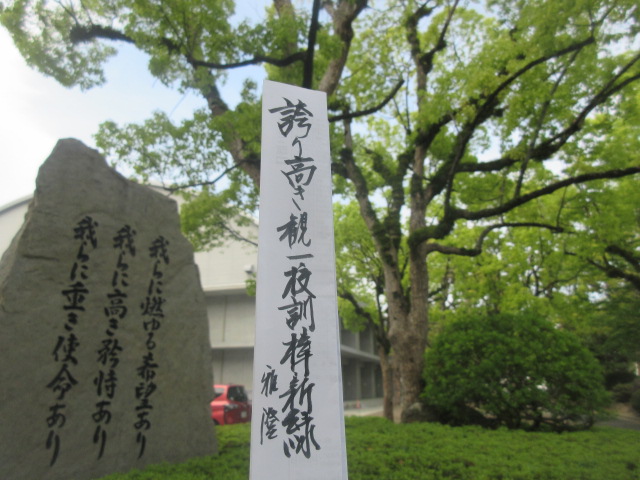 誇り高き観一校訓樟新緑
雅澄
我らに燃ゆる希望あり
我らに高き矜恃あり
我らに重き使命あり